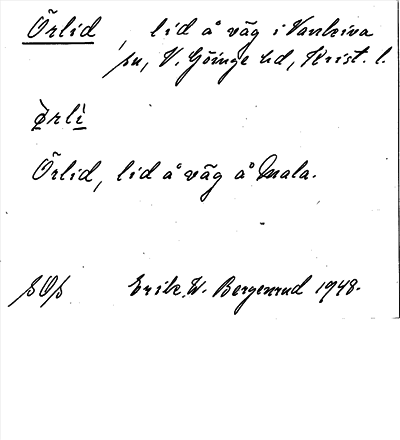 Örlid, lid å väg i Vankiva
sn, V. Göinge hd, Krist. l.
Ørlì
Örlid, lid å väg å Mala.
sOs Erik W. Bergenrud 1948.